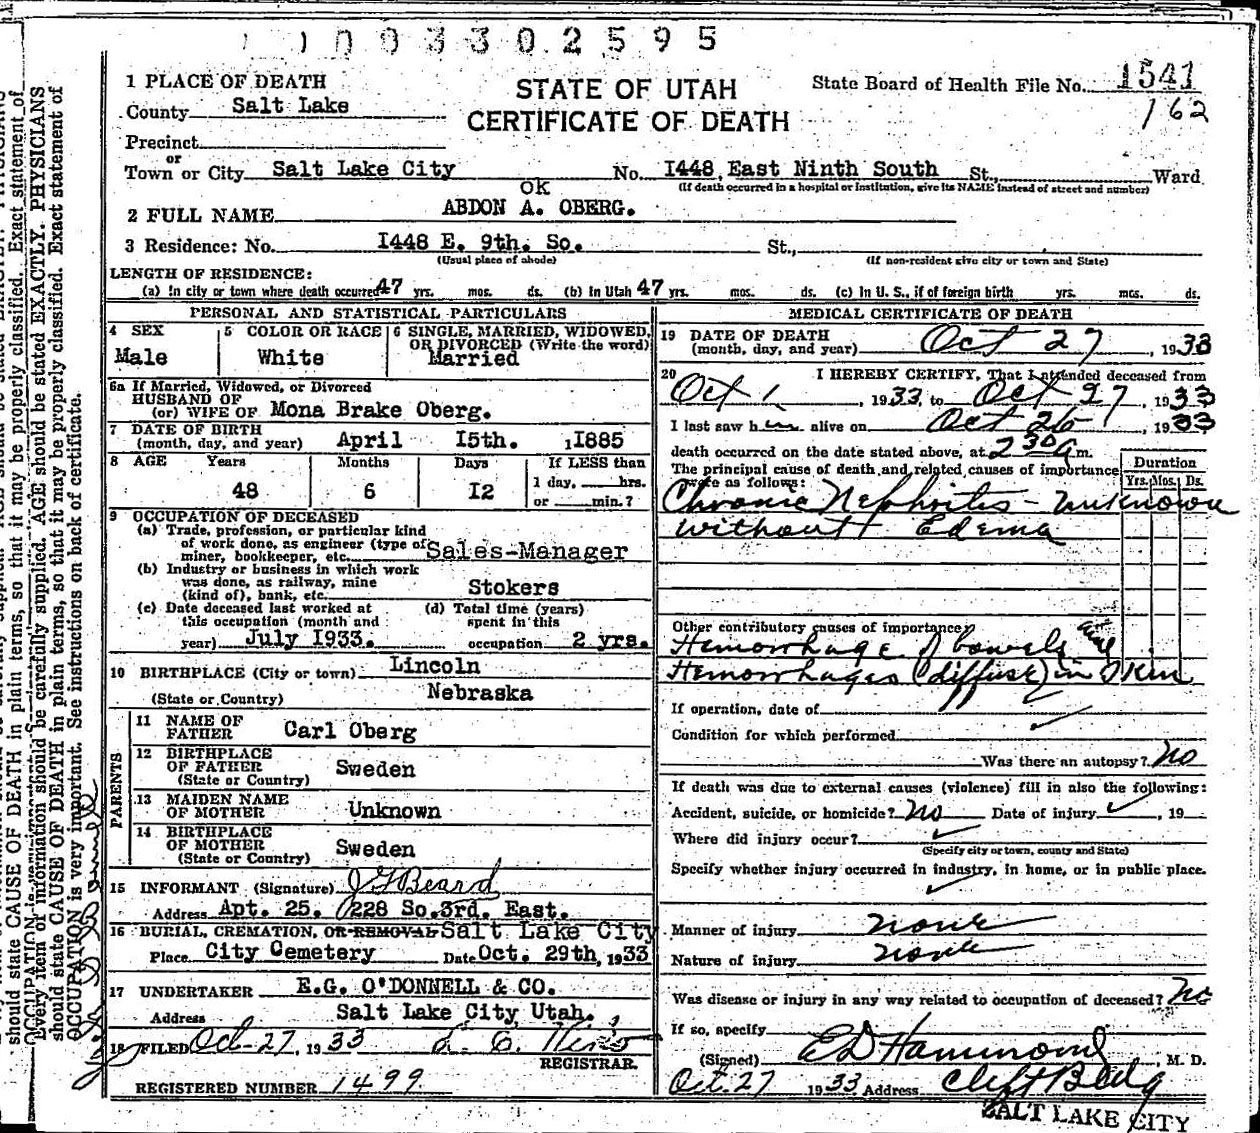 0 9 3 3 0 2 5 9 5
STATE OF UTAH
CERTIFICATE OF DEATH
State Board of Health File No. 1541
162
1 PLACE OF DEATH
County Salt Lake
Precinct
or
Town or City Salt Lake City No. I448 East Ninth South St., Ward
(If death occurred in a hospital or institution, give its NAME instead of street and number)
OK
2 FULL NAME ABDON A. OBERG.
3 Residence: No. I448 E. 9th. So. St.,
(Usual place of abode) (If non-resident give city or town and State)
LENGTH OF RESIDENCE:
(a) In city or town where death occurred 47 yrs. mos. ds. (b) In Utah 47 yrs. mos. ds. (c) In U. S., if of foreign birth yrs. mos. ds.
PERSONAL AND STATISTICAL PARTICULARS
4 SEX Male
5 COLOR OR RACE White
6 SINGLE, MARRIED, WIDOWED, OR DIVORCED (Write the word) Married
6a If Married, Widowed, or Divorced
HUSBAND OF
(or) WIFE OF Mona Brake Oberg.
7 DATE OF BIRTH
(month, day, and year) April I5th. , 1885
8 AGE Years Months Days If LESS than
1 day, hrs.
48 6 I2 or min.?
9 OCCUPATION OF DECEASED
(a) Trade, profession, or particular kind
of work done, as engineer (type of
miner, bookkeeper, etc. Sales-Manager
(b) Industry or business in which work
was done, as railway, mine
(kind of), bank, etc. Stokers
(c) Date deceased last worked at
this occupation (month and
year) July I933.
(d) Total time (years)
spent in this
occupation 2 yrs.
10 BIRTHPLACE (City or town) Lincoln
(State or Country) Nebraska
PARENTS
11 NAME OF
FATHER Carl Oberg
12 BIRTHPLACE
OF FATHER Sweden
(State or Country)
13 MAIDEN NAME
OF MOTHER Unknown
14 BIRTHPLACE
OF MOTHER Sweden
(State or Country)
15 INFORMANT (Signature) J G Beard
Address Apt. 25. 228 So.3rd. East.
16 BURIAL, CREMATION, OR REMOVAL Salt Lake City
Place City Cemetery Date Oct. 29th, 1933
17 UNDERTAKER E.G. O'DONNELL & CO.
Address Salt Lake City Utah.
18 FILED Oct-27, 1933
REGISTRAR.
REGISTERED NUMBER 1499
MEDICAL CERTIFICATE OF DEATH
19 DATE OF DEATH
(month, day, and year) Oct 27, 1933
20 I HEREBY CERTIFY, That I attended deceased from
Oct 1, 1933, to Oct 27, 1933
I last saw him alive on Oct 26, 1933
death occurred on the date stated above, at 2 30 a m.
The principal cause of death and related causes of importance
were as follows:
Duration
Yrs. Mos. Ds.
Chronic Nephritis - unknown
without Edema
Other contributory causes of importance:
Hemorrhage of bowels and
Hemorrhages (diffuse) in Skin
If operation, date of
Condition for which performed
Was there an autopsy? No
If death was due to external causes (violence) fill in also the following:
Accident, suicide, or homicide? No Date of injury , 19
Where did injury occur?
(Specify city or town, county and State)
Specify whether injury occurred in industry, in home, or in public place.
Manner of injury none
Nature of injury none
Was disease or injury in any way related to occupation of deceased? No
If so, specify
(Signed) E D Hammond, M. D.
Oct. 27 1933 Address Clift Bldg
SALT LAKE CITY
should state CAUSE OF DEATH in plain terms, so that it may be properly classified. Exact statement of
Every item of information should be carefully supplied. AGE should be stated EXACTLY. PHYSICIANS
should state CAUSE OF DEATH in plain terms, so that it may be properly classified. Exact statement of
OCCUPATION is very important. See instructions on back of certificate.